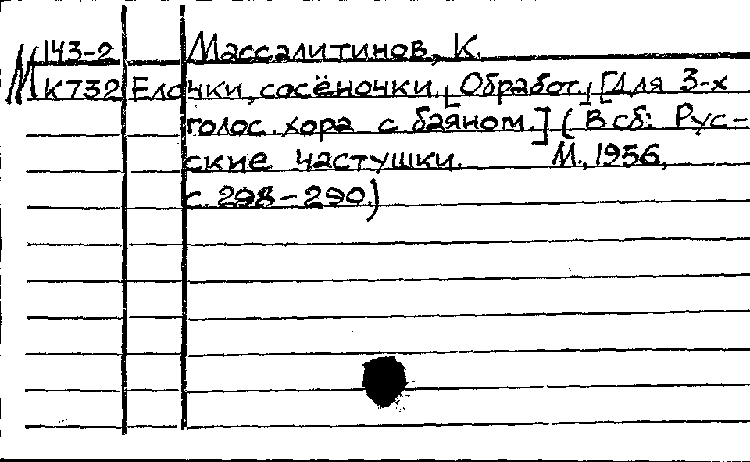 М 143-2 Массалитинов, К.
К732 Елочки, сосёночки. [Обработ.] [Для 3-х
голос. хора с баяном.] (В сб: Рус-
ские частушки. М., 1956,
с. 298-290.)